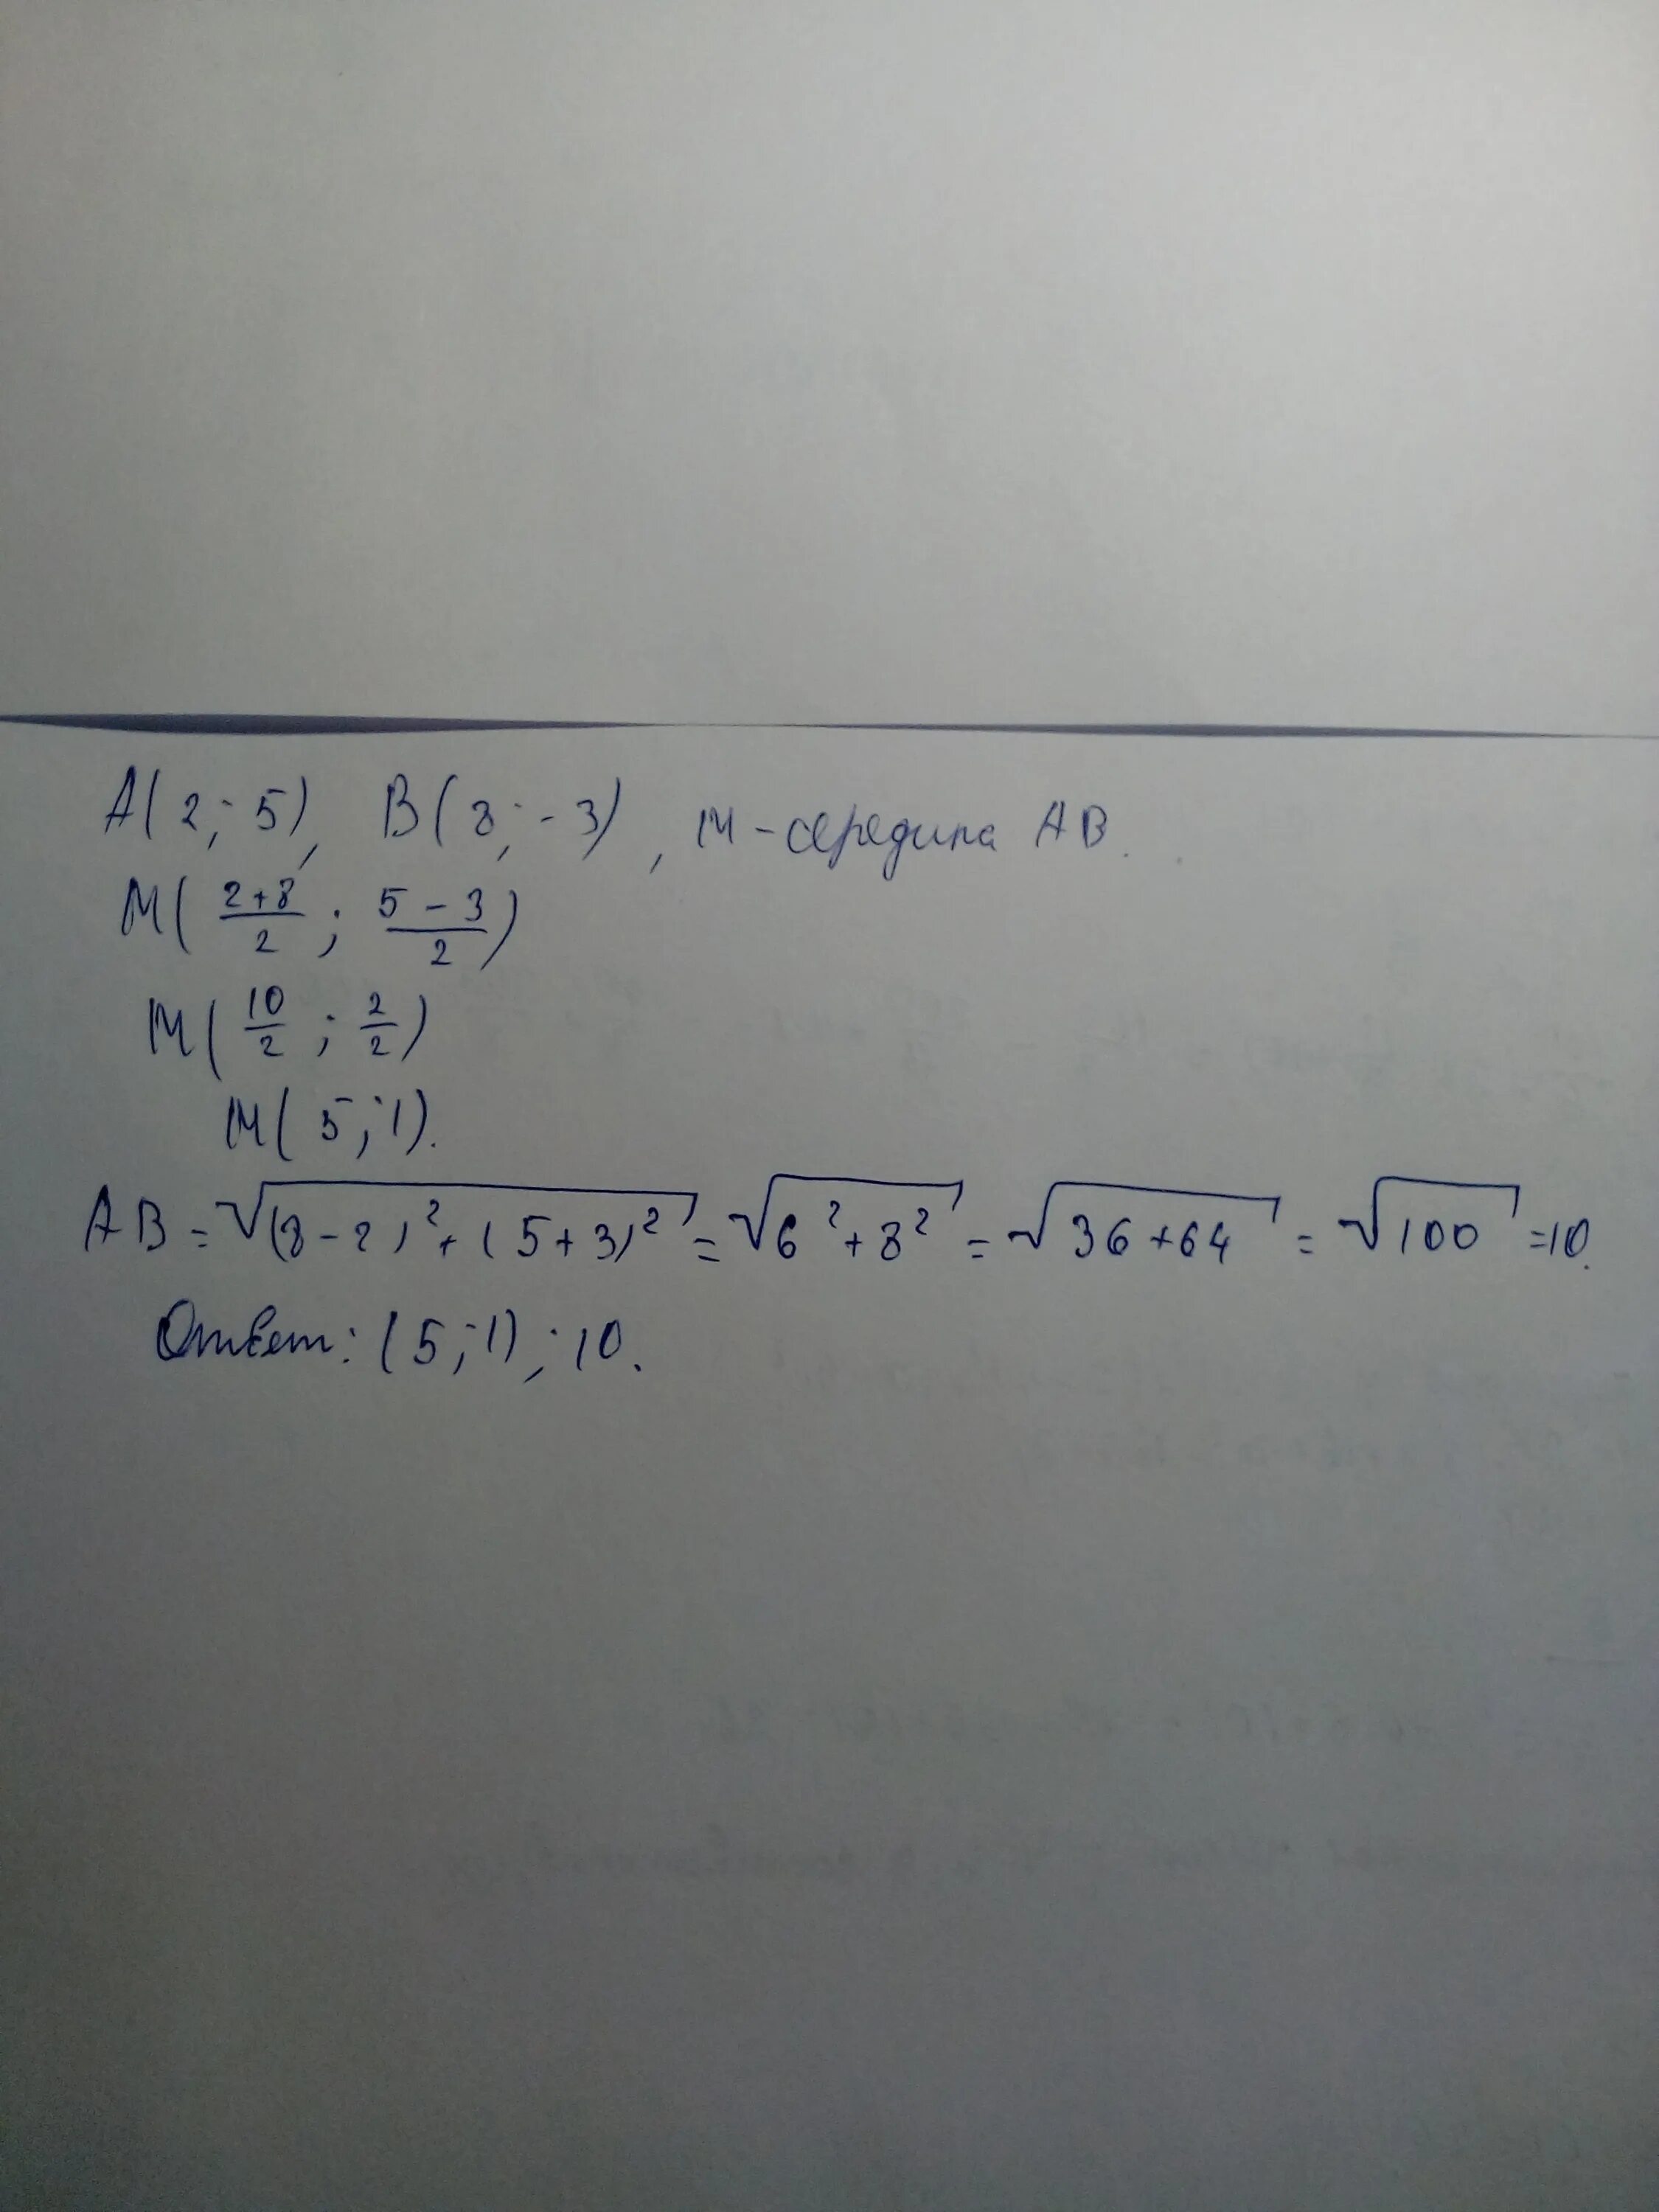 A(2; 5), B(8; -3), M-середина AB.
M(\frac{2+8}{2}; \frac{5-3}{2})
M(\frac{10}{2}; \frac{2}{2})
M(5; 1).
AB = \sqrt{(8-2)^2+(5+3)^2} = \sqrt{6^2+8^2} = \sqrt{36+64} = \sqrt{100} = 10.
Ответ: (5; 1); 10.